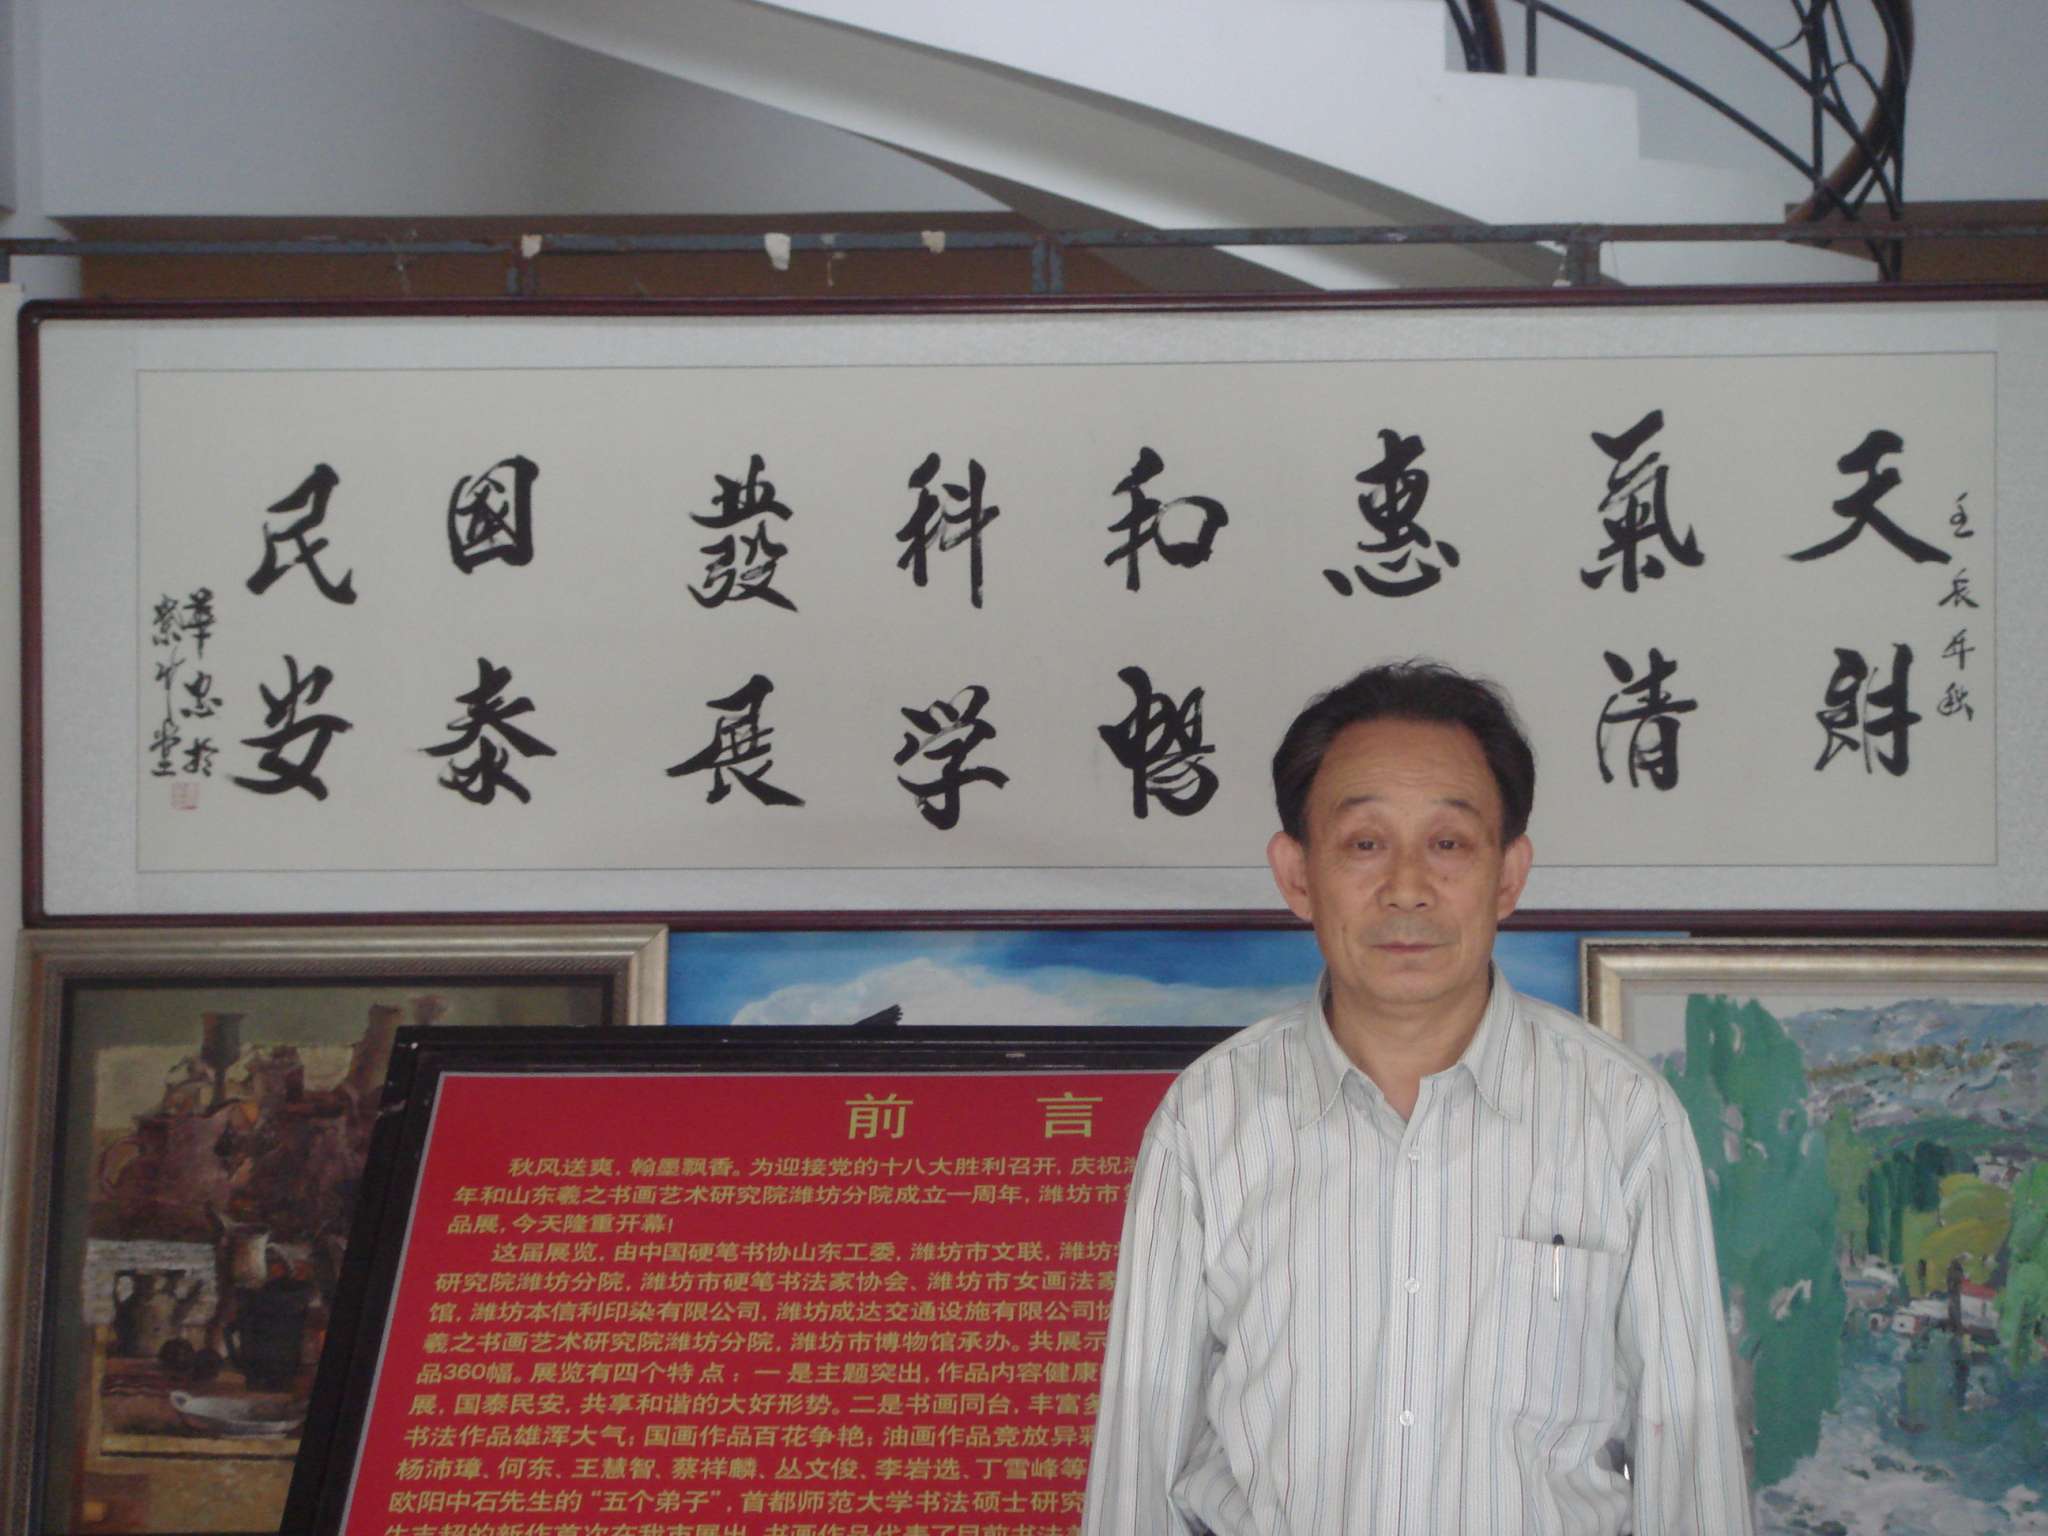 壬辰年秋
天朗
氣清
惠
和暢
科学
發展
國泰
民安
華忠於
紫竹堂
前 言
秋风送爽，翰墨飘香。为迎接党的十八大胜利召开，庆祝潍
年和山东羲之书画艺术研究院潍坊分院成立一周年，潍坊市
品展，今天隆重开幕！
这届展览，由中国硬笔书协山东工委，潍坊市文联，潍坊
研究院潍坊分院，潍坊市硬笔书法家协会、潍坊市女画法家
馆，潍坊本信利印染有限公司，潍坊成达交通设施有限公司协
羲之书画艺术研究院潍坊分院，潍坊市博物馆承办。共展示
品360幅。展览有四个特点：一是主题突出，作品内容健康
展，国泰民安，共享和谐的大好形势。二是书画同台，丰富多
书法作品雄浑大气；国画作品百花争艳；油画作品竞放异彩
杨沛璋、何东、王慧智、蔡祥麟、丛文俊、李岩选、丁雪峰等
欧阳中石先生的“五个弟子”，首都师范大学书法硕士研究
的新作首次在我市展出，书画作品代表了目前书法